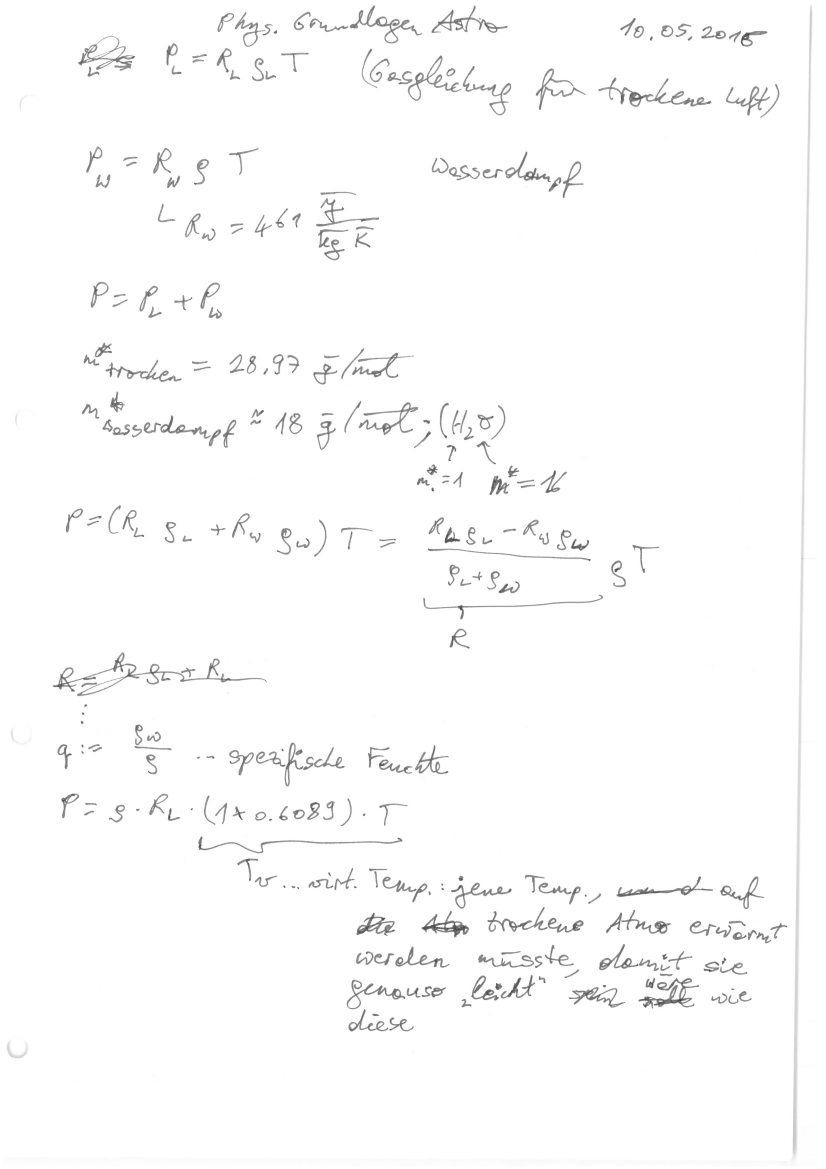 Phys. Grundlagen Astro 10.05.2016
P_L = R_L ρ_L T (Gasgleichung für trockene Luft)
P_W = R_W ρ T Wasserdampf
R_W = 461 J/(kg K)
P = P_L + P_W
m*_trocken = 28,97 g/mol
m*_Wasserdampf ≈ 18 g/mol ; (H₂O)
m* = 1 m* = 16
P = (R_L ρ_L + R_W ρ_W) T = (R_L ρ_L - R_W ρ_W)/(ρ_L + ρ_W) ρ T
R
R = R_L ρ_L + R_L
⋮
q := ρ_W/ρ ... spezifische Feuchte
P = ρ · R_L · (1 + 0.608q) · T
T_v ... virt. Temp.: jene Temp., auf
die trockene Atmo erwärmt
werden müsste, damit sie
genauso „leicht" wäre wie
diese